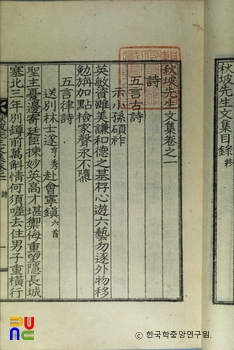 秋坡先生文集目錄 終
秋坡先生文集卷之一
詩
五言古詩
示小孫碩祚
英敏資雖美謙和德之基存心遊六藝勿逐外物移
勉旃加點檢家聲永不隳
五言律詩
送別林士遂亨秀赴會寧鎭六首
聖主憂邊寄廷臣揀妙英高才堪禦侮重望隱長城
塞北三年別鐏前萬斛情何須嗟去住男子重橫行
한국학중앙연구원